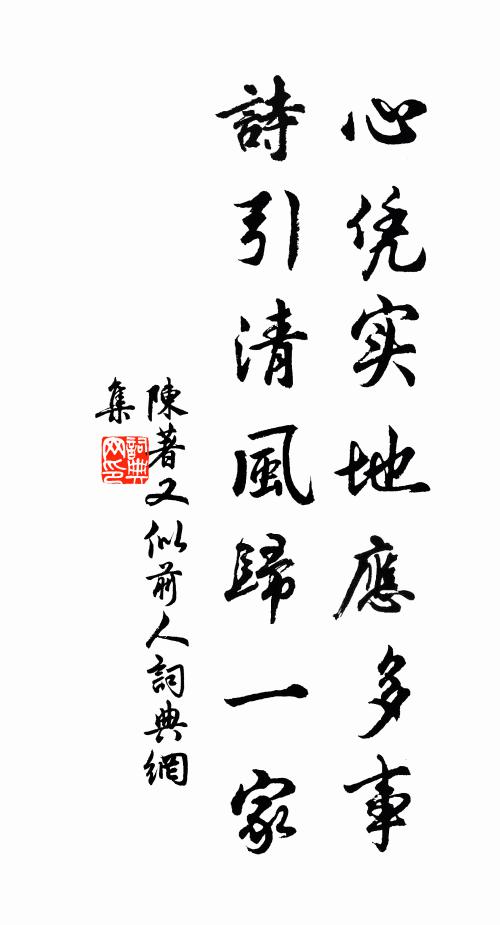 心凭实地應多事
詩引清風歸一家
陳著又似前人詞典網
集
詞典
网印